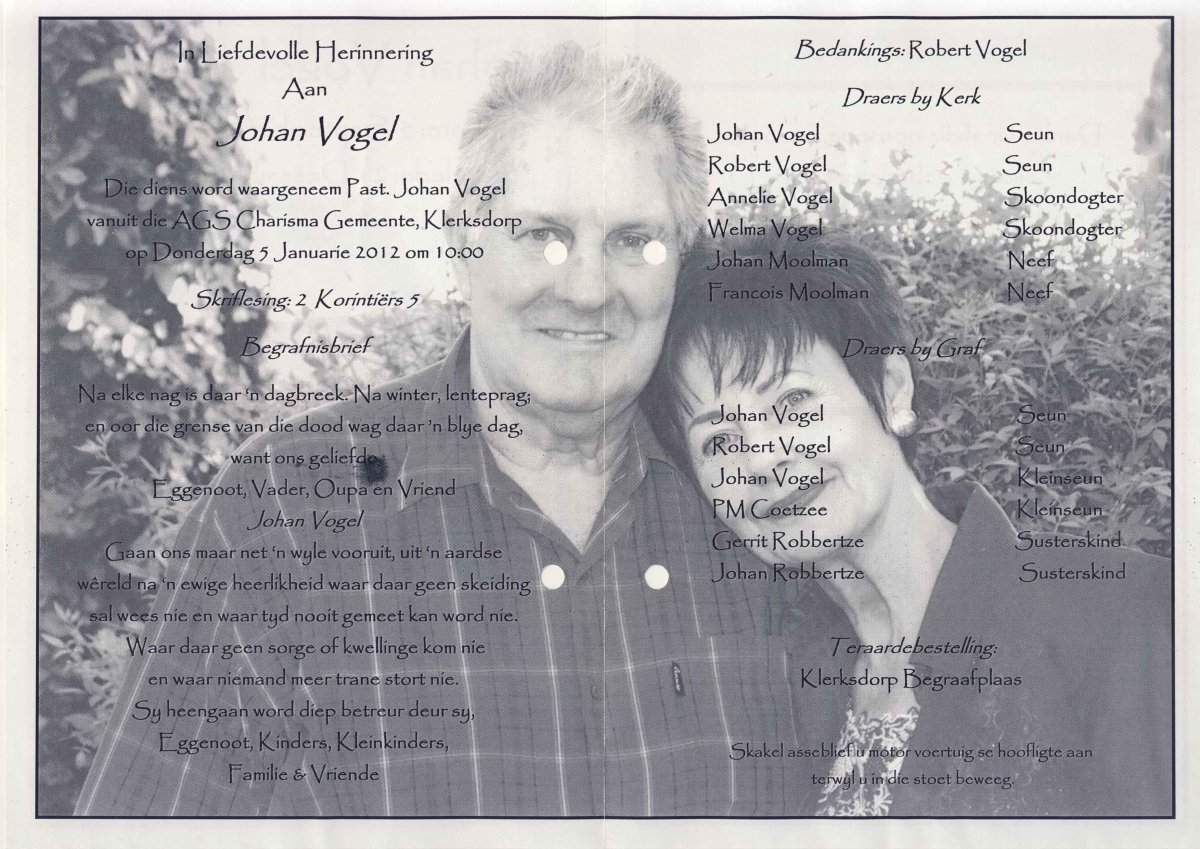 In Liefdevolle Herinnering
Aan
Johan Vogel
Die diens word waargeneem Past. Johan Vogel
vanuit die AGS Charisma Gemeente, Klerksdorp
op Donderdag 5 Januarie 2012 om 10:00
Skriflesing: 2 Korintiërs 5
Begrafnisbrief
Na elke nag is daar ‘n dagbreek. Na winter, lenteprag;
en oor die grense van die dood wag daar ’n blye dag,
want ons geliefde
Eggenoot, Vader, Oupa en Vriend
Johan Vogel
Gaan ons maar net ‘n wyle vooruit, uit ‘n aardse
wêreld na ‘n ewige heerlikheid waar daar geen skeiding
sal wees nie en waar tyd nooit gemeet kan word nie.
Waar daar geen sorge of kwellinge kom nie
en waar niemand meer trane stort nie.
Sy heengaan word diep betreur deur sy,
Eggenoot, Kinders, Kleinkinders,
Familie & Vriende
Bedankings: Robert Vogel
Draers by Kerk
Johan Vogel Seun
Robert Vogel Seun
Annelie Vogel Skoondogter
Welma Vogel Skoondogter
Johan Moolman Neef
Francois Moolman Neef
Draers by Graf
Johan Vogel Seun
Robert Vogel Seun
Johan Vogel Kleinseun
PM Coetzee Kleinseun
Gerrit Robbertze Susterskind
Johan Robbertze Susterskind
Teraardebestelling:
Klerksdorp Begraafplaas
Skakel asseblief u motor voertuig se hoofligte aan
terwyl u in die stoet beweeg.